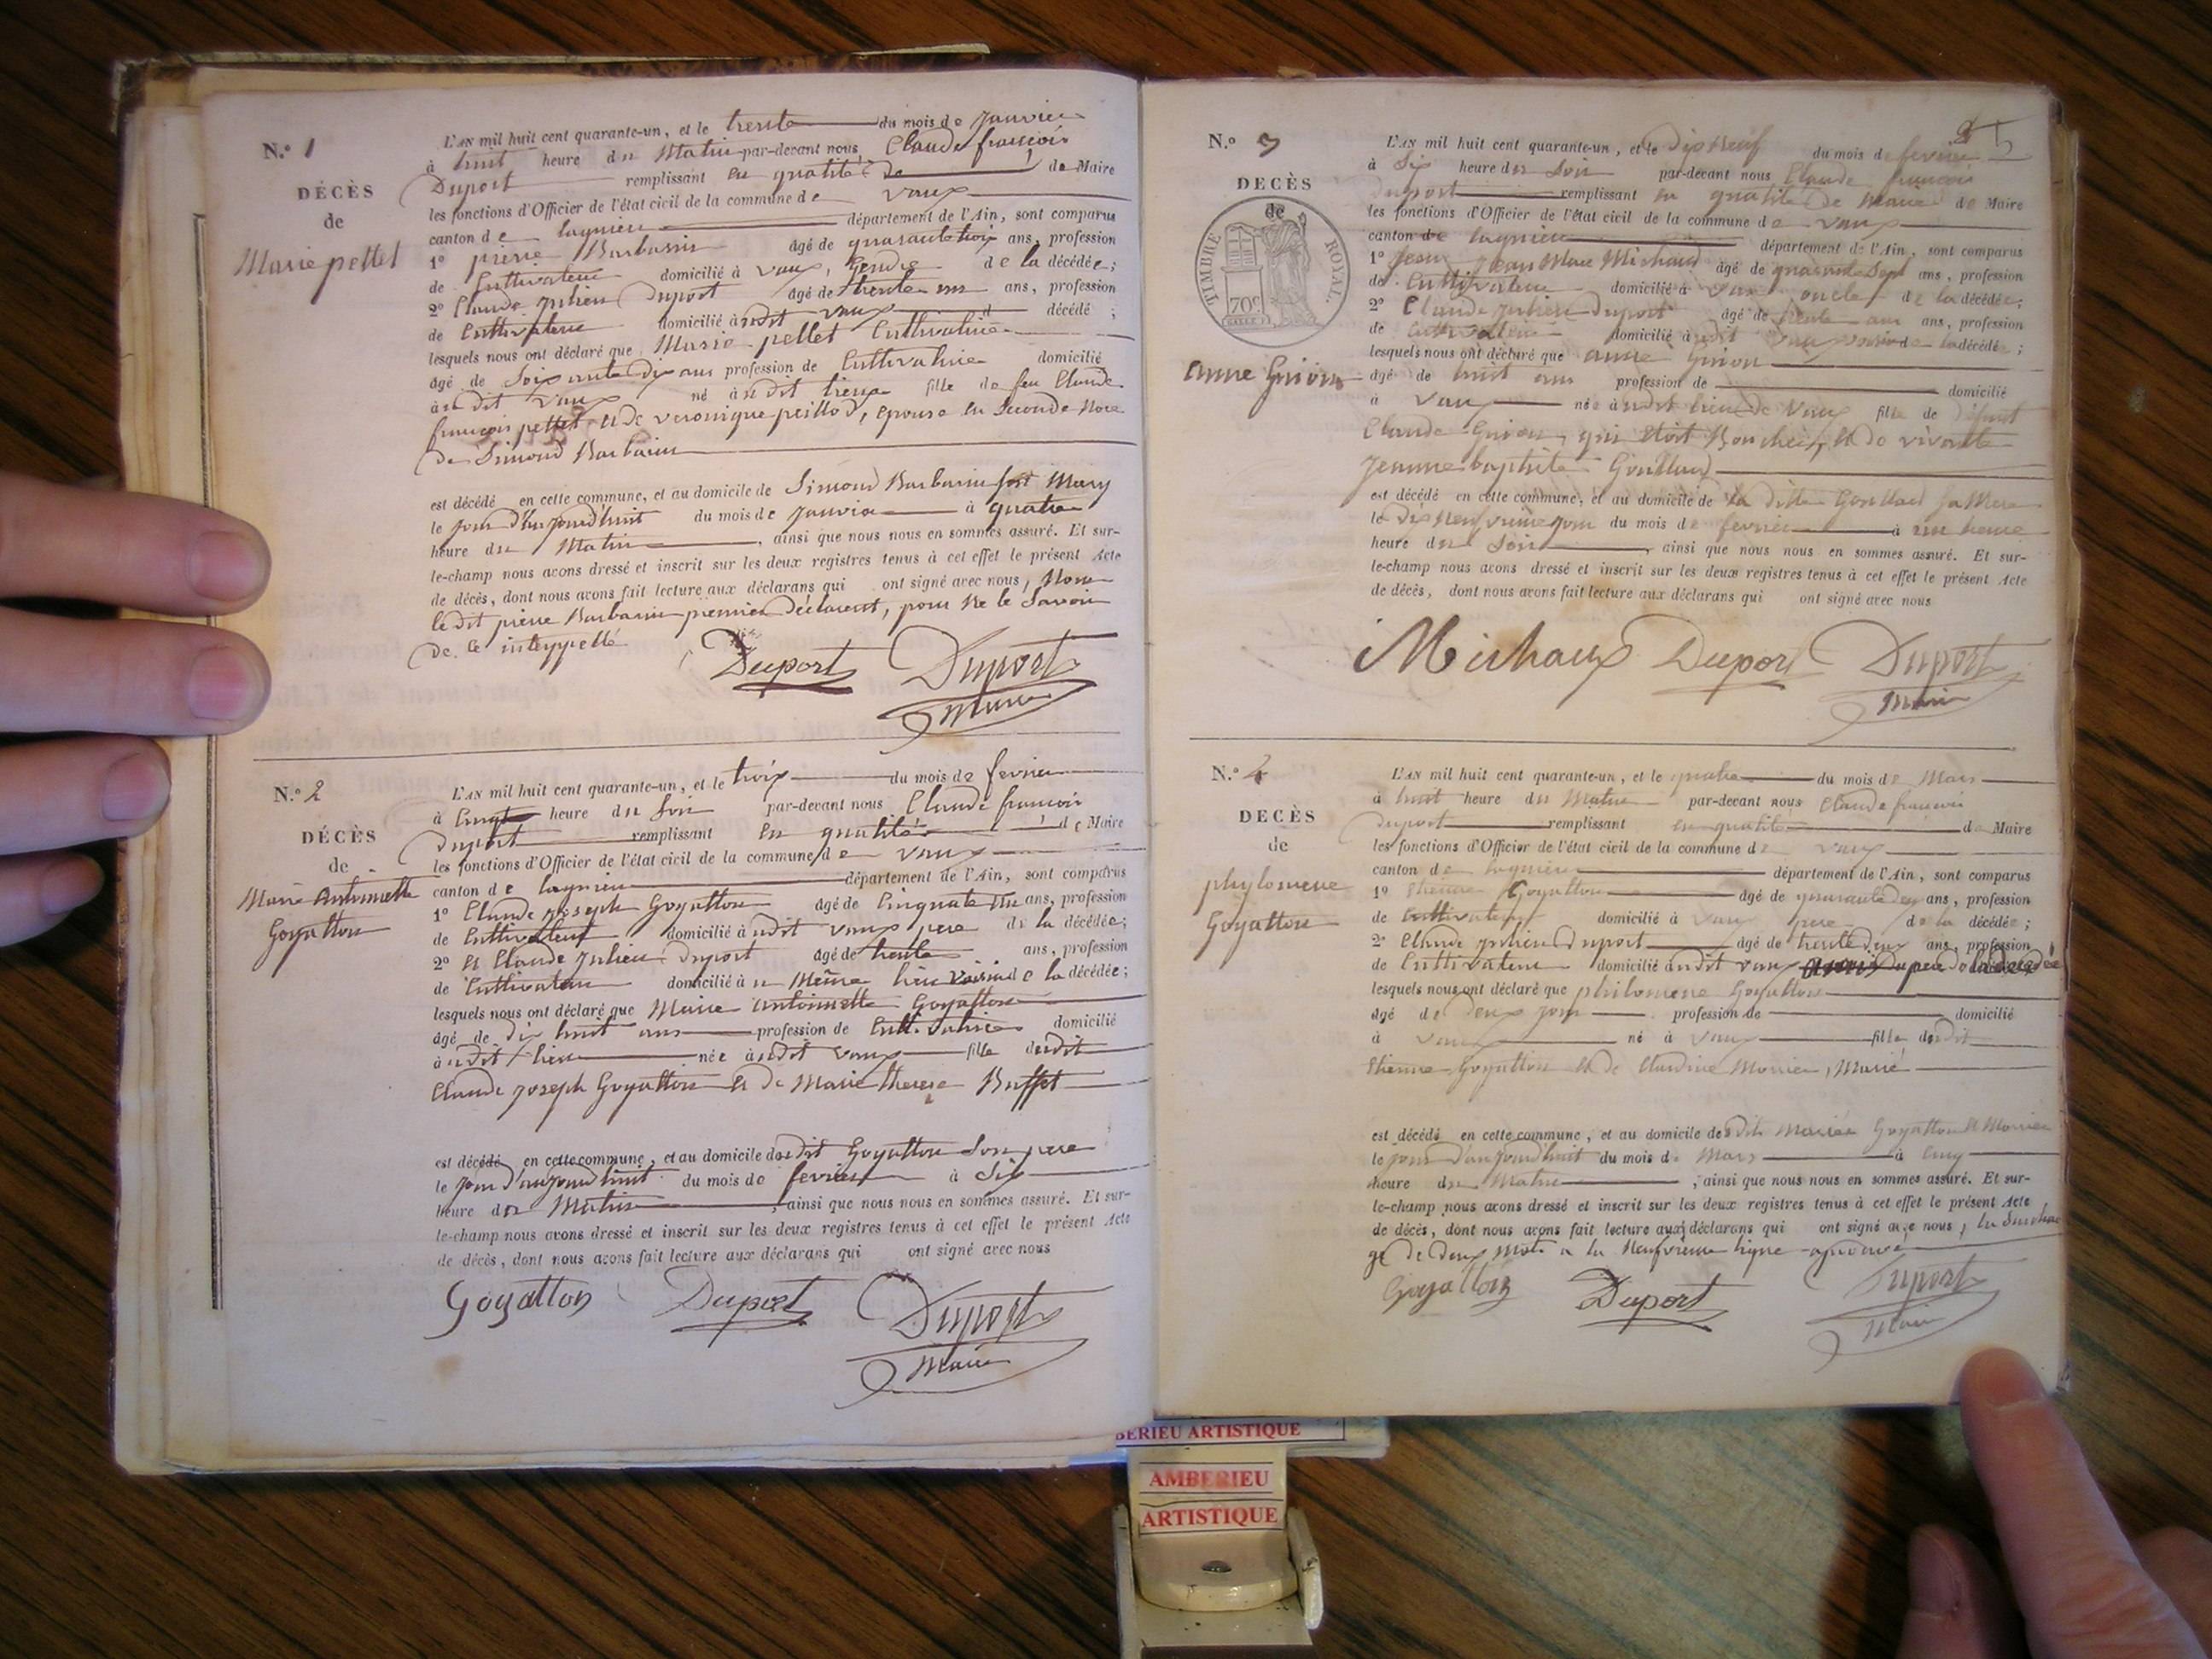 N.o 1
DÉCÈS
de
Marie pettet
L'AN mil huit cent quarante-un, et le trente du mois de janvier
à huit heure du Matin par-devant nous Claude françois
Duport remplissant en qualité de de Maire
les fonctions d'Officier de l'état civil de la commune de vaux
canton de lagnieu département de l'Ain, sont comparus
1o pierre Barbarin âgé de quarante trois ans, profession
de Cultivateur domicilié à vaux, Gendre de la décédée;
2o Claude julien Duport âgé de trente un ans, profession
de Cultivateur domicilié àudit vaux d décédé ;
lesquels nous ont déclaré que Marie pellet Cultivatrice
âgé de Soixante Dix ans profession de Cultivatrice domicilié
àudit vaux né àudit lieux fille de feu Claude
françois pettet et de veronique peillod, epouse en Seconde Noce
de Simond Barbarin
est décédé en cette commune, et au domicile de Simond Barbarin
le jour d'hujourd'huit du mois de janvier à quatre
heure du Matin , ainsi que nous nous en sommes assuré. Et sur-
le-champ nous avons dressé et inscrit sur les deux registres tenus à cet effet le présent Acte
de décès, dont nous avons fait lecture aux déclarans qui ont signé avec nous, Non
le dit pierre Barbarin premier Déclarent, pour ne le Savoir
de ce interppellé
Duport Duport
Maire
N.o 2
DÉCÈS
de
Marie Antoinette
Goyatton
L'AN mil huit cent quarante-un, et le trois du mois de fevrier
à Cinq heure du Soir par-devant nous Claude françois
duport remplissant en qualité de Maire
les fonctions d'Officier de l'état civil de la commune de vaux
canton de lagnieu département de l'Ain, sont comparus
1o Claude joseph Goyatton âgé de Cinquante un ans, profession
de Cultivateur domicilié àudit vaux pere de la décédée;
2o et Claude julien Duport âgé de trente ans, profession
de Cultivateur domicilié à u Même lieu voisin de la décédée;
lesquels nous ont déclaré que Marie antoinette Goyatton
âgé de dix huit ans profession de Cultivatrice domicilié
àudit lieu née àudit vaux fille dudit
Claude joseph Goyatton et de Marie therese Buffet
est décédé en cette commune, et au domicile dudit Goyatton Son pere
le jour d'aujourd'huit du mois de fevrier à Six
heure du Matin , ainsi que nous nous en sommes assuré. Et sur-
le-champ nous avons dressé et inscrit sur les deux registres tenus à cet effet le présent Acte
de décès, dont nous avons fait lecture aux déclarans qui ont signé avec nous
Goyatton Duport Duport
Maire
N.o 3
DECÈS
de
TIMBRE ROYAL.
70c
anne Guion
L'AN mil huit cent quarante-un, et le Dix Neuf du mois de fevrier
à Six heure du Soir par-devant nous Claude françois
duport remplissant en qualité de Maire de Maire
les fonctions d'Officier de l'état civil de la commune de vaux
canton de lagnieu département de l'Ain, sont comparus
1o Jean Marc Michaud âgé de quarante Sept ans, profession
de Cultivateur domicilié à vaux oncle de la décédée;
2o Claude julien duport âgé de trente ans, profession
de Cultivateur domicilié àudit vaux voisin de la décédée;
lesquels nous ont déclaré que anne Guion
âgé de huit ans profession de domicilié
à vaux née àudit lieu de vaux fille de Défunt
Claude Guion, qui Etoit Boucher, et de vivante
jeanne baptiste Goullud
est décédé en cette commune, et au domicile de la ditte sa Mere
le Dix Neufvieme jour du mois de fevrier à une heure
heure du Soir , ainsi que nous nous en sommes assuré. Et sur-
le-champ nous avons dressé et inscrit sur les deux registres tenus à cet effet le présent Acte
de décès, dont nous avons fait lecture aux déclarans qui ont signé avec nous
Michaux Duport Duport
Maire
N.o 4
DECÈS
de
phylomene
Goyatton
L'AN mil huit cent quarante-un, et le quatre du mois de Mars
à huit heure du Matin par-devant nous Claude françois
duport remplissant en qualité de Maire
les fonctions d'Officier de l'état civil de la commune de vaux
canton de lagnieu département de l'Ain, sont comparus
1o Etienne Goyatton âgé de quarante deux ans, profession
de Cultivateur domicilié à vaux pere de la décédée;
2o Claude julien Duport âgé de trente deux ans, profession
de Cultivateur domicilié àudit vaux
lesquels nous ont déclaré que philomene Goyatton
âgé de deux jour profession de domicilié
à vaux né à vaux fille dudit
Etienne Goyatton et de Claudine Monier, Marié
est décédé en cette commune, et au domicile desdits Mariés Goyatton et Monier
le jour d'aujourd'huit du mois de Mars à Cinq
heure du Matin , ainsi que nous nous en sommes assuré. Et sur-
le-champ nous avons dressé et inscrit sur les deux registres tenus à cet effet le présent Acte
de décès, dont nous avons fait lecture aux déclarans qui ont signé avec nous, la Surchar
ge de deux mots a la Neufvieme ligne aprouvé
Goyatton Duport Duport
Maire
BERIEU ARTISTIQUE
AMBERIEU
ARTISTIQUE